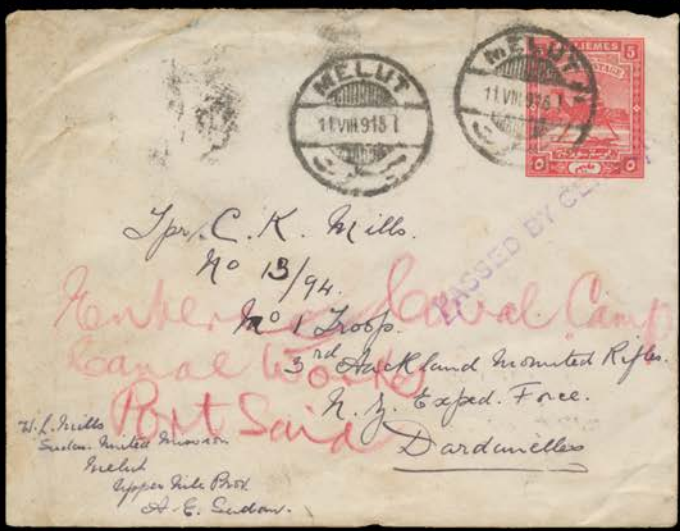 MELUT
11.VIII.915 1
MELUT
11.VIII.915 1
5
POSTAGE
٥ ٥
PASSED BY
Tpr. C. K. Mills.
No 13/94.
No 1 Troop.
3rd Auckland Mounted Rifles.
N. Z. Exped. Force.
Dardanelles
Camp
Canal Works
Port Said
W. L. Mills
Sudan United Mission
Melut
Upper Nile Prov.
A. E. Sudan.